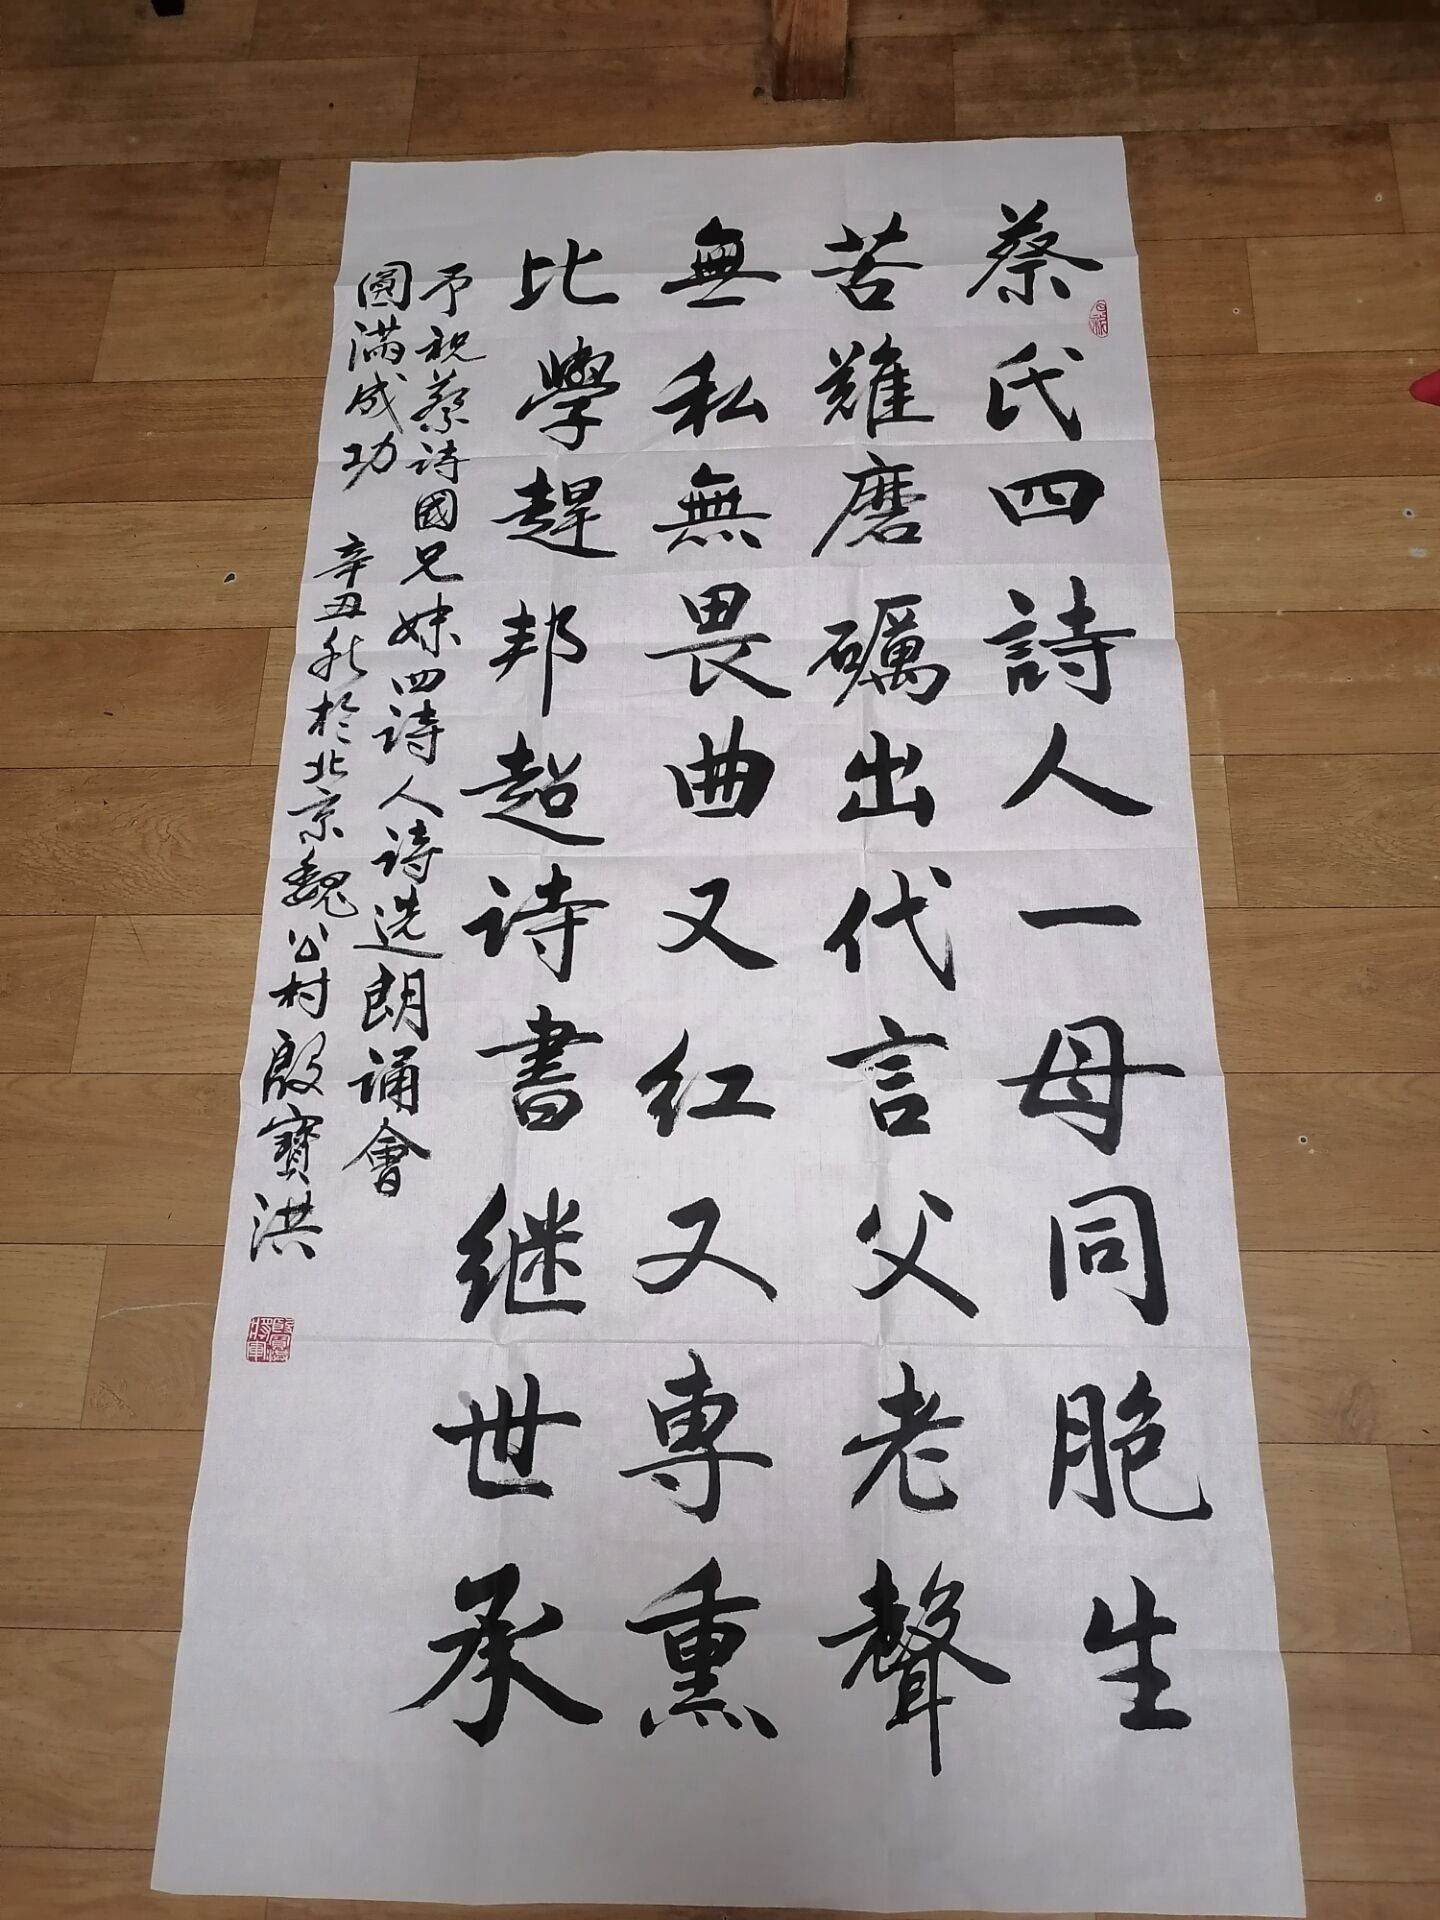 蔡氏四詩人一母同胞生
苦難磨礪出代言父老聲
無私無畏曲又红又専熏
比學趕邦超诗書继世承
予祝蔡诗國兄妹四诗人诗选朗诵會
圆满成功 辛丑秋於北京魏公村殷寶洪